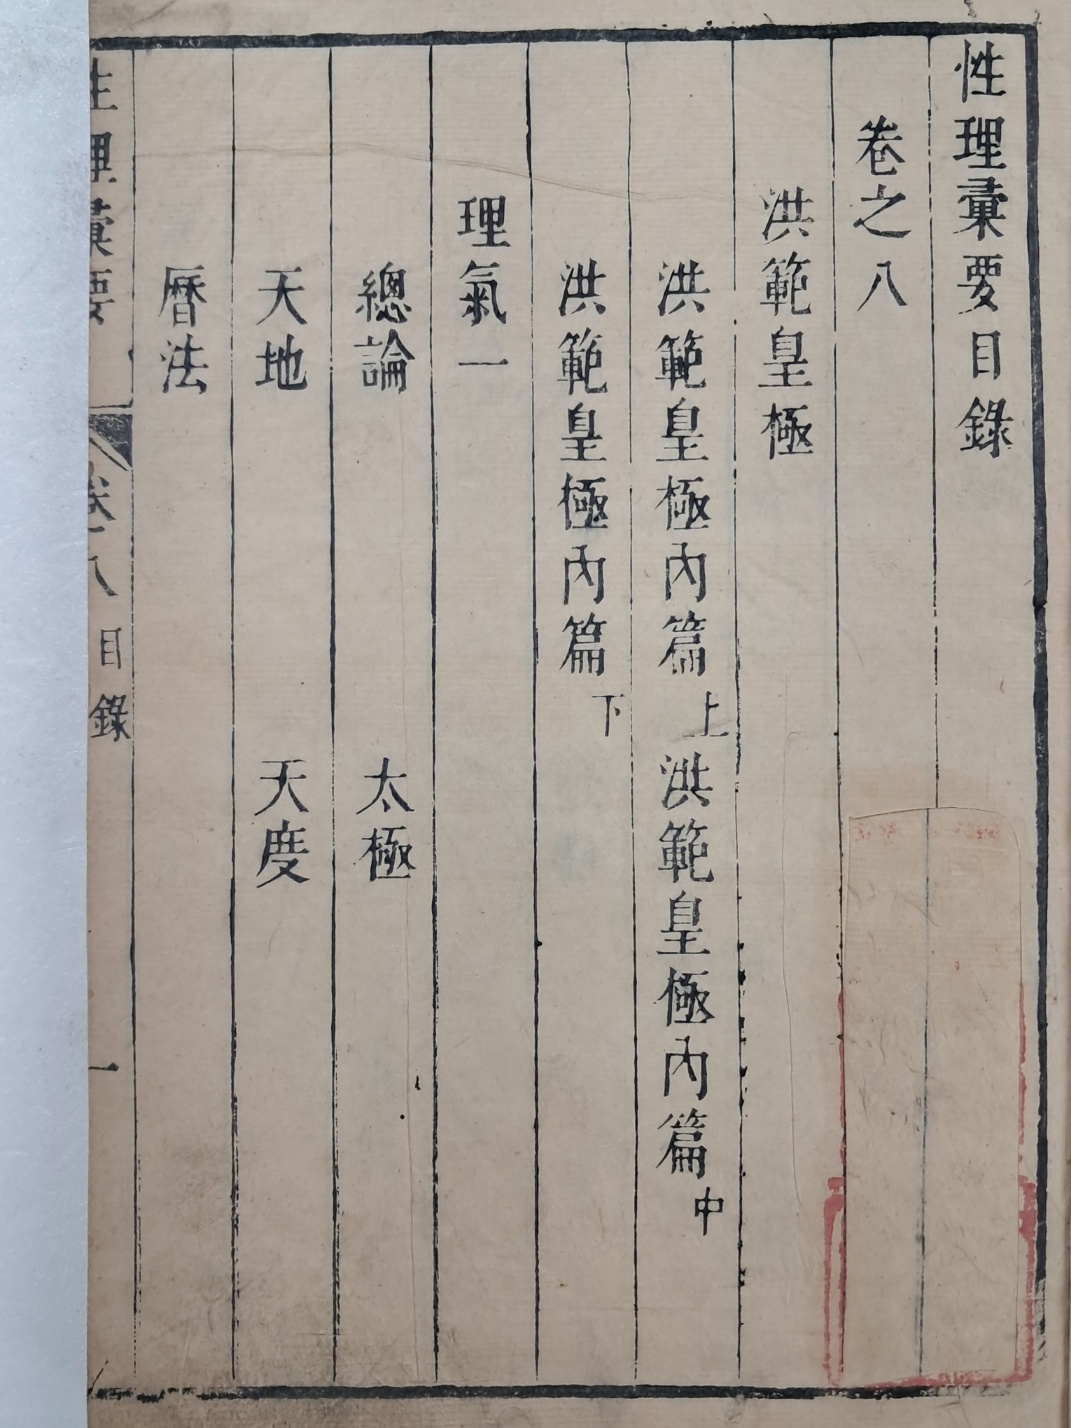 性理彙要目錄
卷之八
洪範皇極
洪範皇極內篇上洪範皇極內篇中
洪範皇極內篇下
理氣一
總論 太極
天地 天度
曆法
性理彙要 卷八 目錄 一